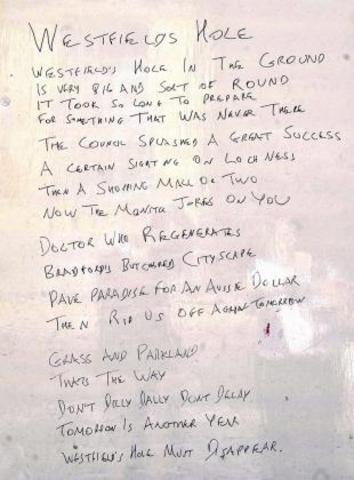 WESTFIELDS HOLE
WESTFIELD'S HOLE IN THE GROUND
IS VERY BIG AND SORT OF ROUND
IT TOOK SO LONG TO PREPARE
FOR SOMETHING THAT WAS NEVER THERE
THE COUNCIL SPLASHED A GREAT SUCCESS
A CERTAIN SIGHTING ON LOCH NESS
THEN A SHOPPING MALL OR TWO
NOW THE JOKES ON YOU
DOCTOR WHO REGENERATES
BRADFORD'S BUTCHERED CITYSCAPE
PAVE PARADISE FOR AN AUSIE DOLLAR
THEN RIP US OFF AGAIN TOMORROW
GRASS AND PARKLAND
THATS THE WAY
DON'T DILLY DALLY DONT DELAY
TOMORROW IS ANOTHER YEAR
WESTFIELD'S HOLE MUST DISAPPEAR.